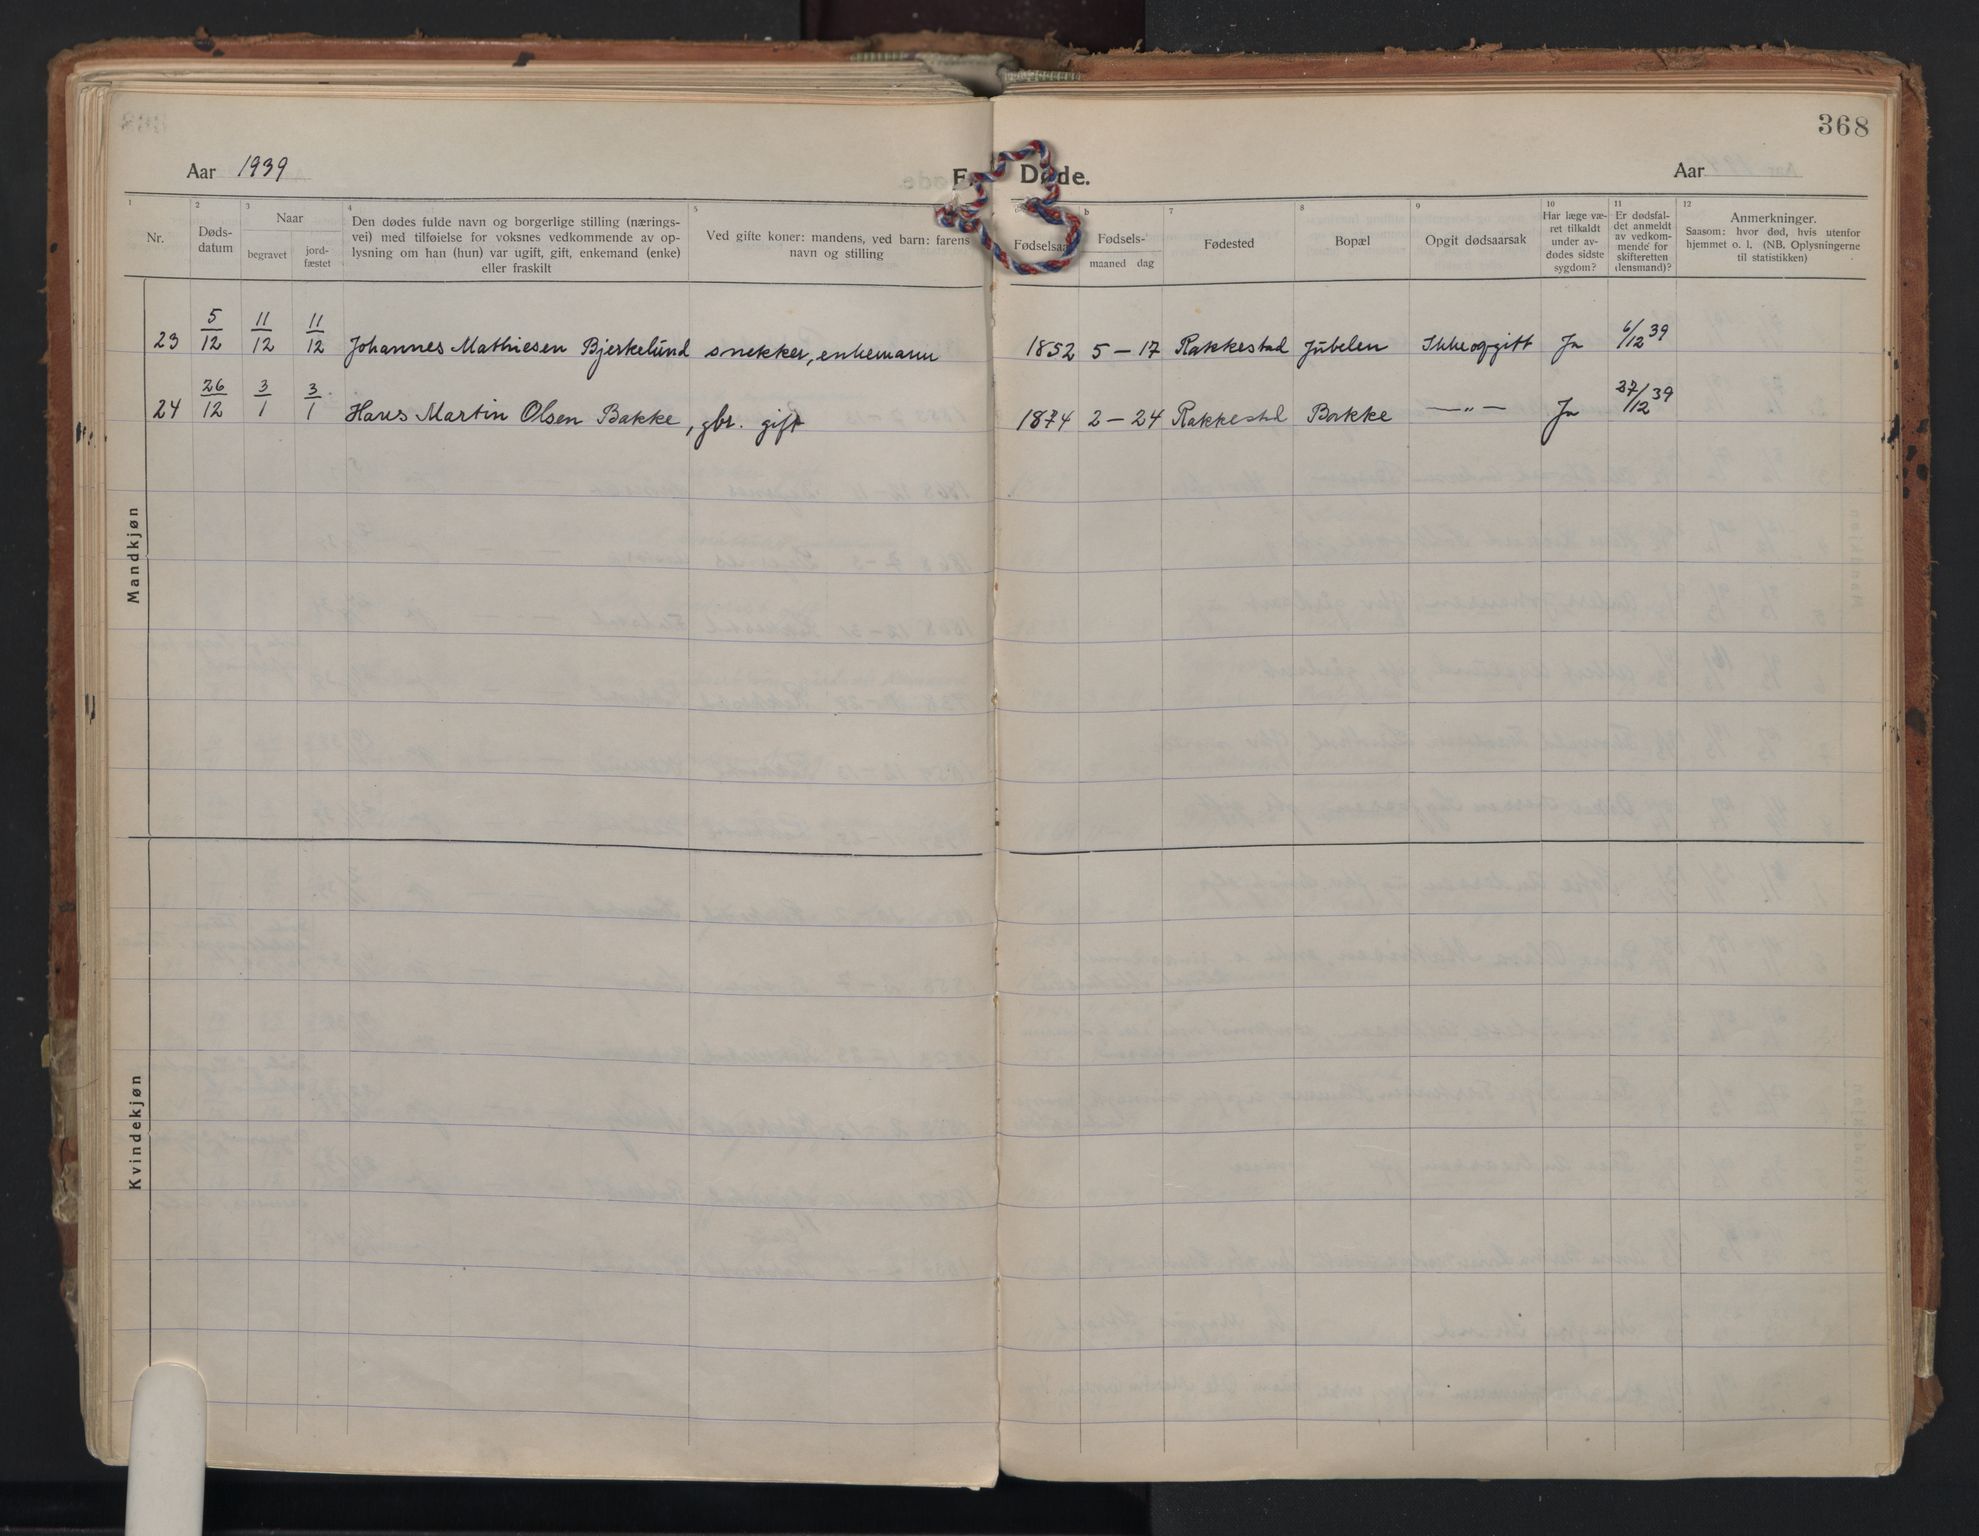 368
Aar 1939
Døde.
Aar
1
Nr.
2
Døds-
datum
3
Naar
begravet
jord-
fæstet
4
Den dødes fulde navn og borgerlige stilling (nærings-
vei) med tilføielse for voksnes vedkommende av op-
lysning om han (hun) var ugift, gift, enkemand (enke)
eller fraskilt
5
Ved gifte koner: mandens, ved barn: farens
navn og stilling
Fødselsaar
b
Fødsels-
maaned dag
7
Fødested
8
Bopæl
9
Opgit dødsaarsak
10
Har læge væ-
ret tilkaldt
under av-
dødes sidste
sygdom?
11
Er dødsfal-
det anmeldt
av vedkom-
mende for
skifteretten
(lensmand)?
12
Anmerkninger.
Saasom: hvor død, hvis utenfor
hjemmet o. l. (NB. Oplysningerne
til statistikken)
Mandkjøn
23 5/12 11/12 11/12 Johannes Mathiesen Bjerkelund snekker, enkemann 1852 5 — 17 Rakkestad Jubelen Ikke opgitt Ja 6/12 39
24 26/12 3/1 3/1 Hans Martin Olsen Bakke, gbr. gift 1874 2 — 24 Rakkestd Bakke —„— Ja 27/12 39
Kvindekjøn